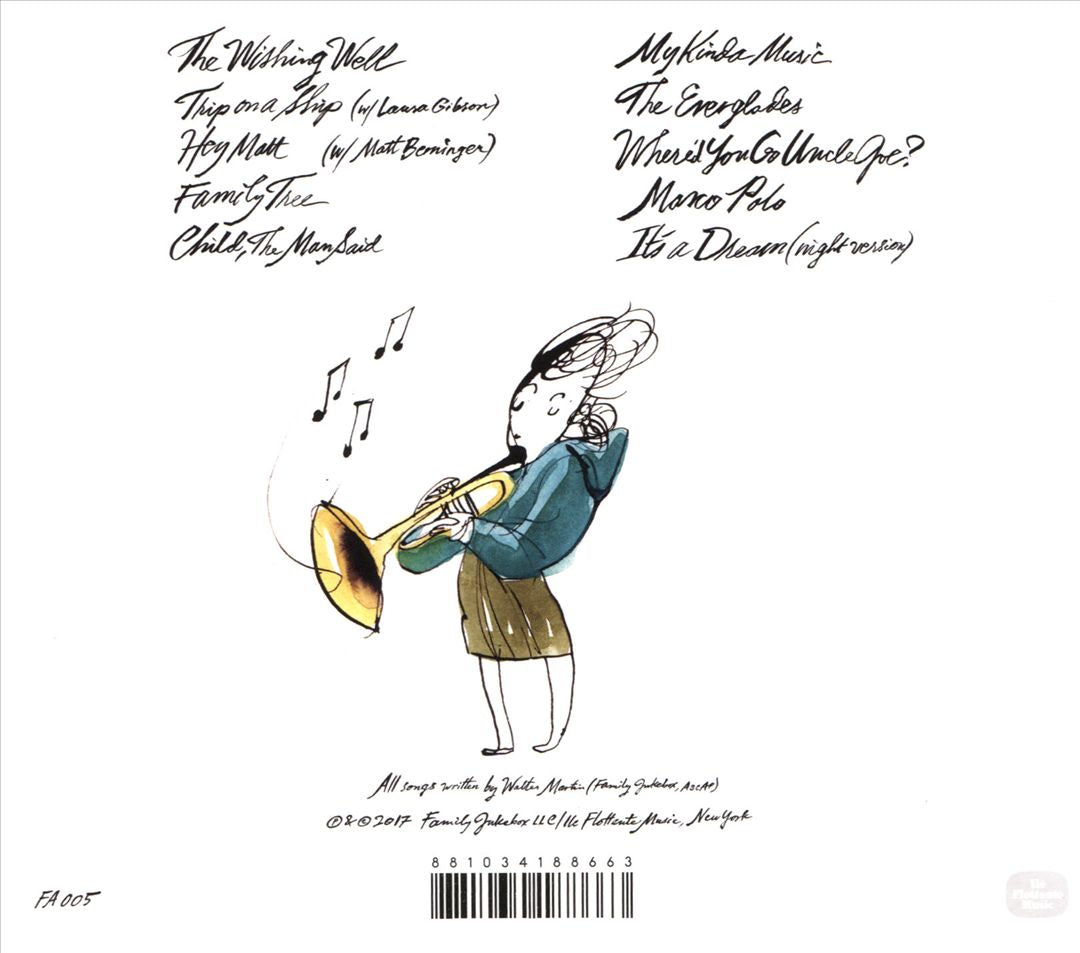 The Wishing Well
Trip on a Ship (w/ Laura Gibson)
Hey Matt (w/ Matt Berninger)
Family Tree
Child, The Man Said
My Kinda Music
The Everglades
Where'd You Go Uncle Joe?
Marco Polo
It's a Dream (night version)
All songs written by Walter Martin (Family Jukebox, ASCAP)
℗ & © 2017 Family Jukebox LLC/Ile Flottante Music, New York
881034188663
FA 005
Ile
Flottante
Music